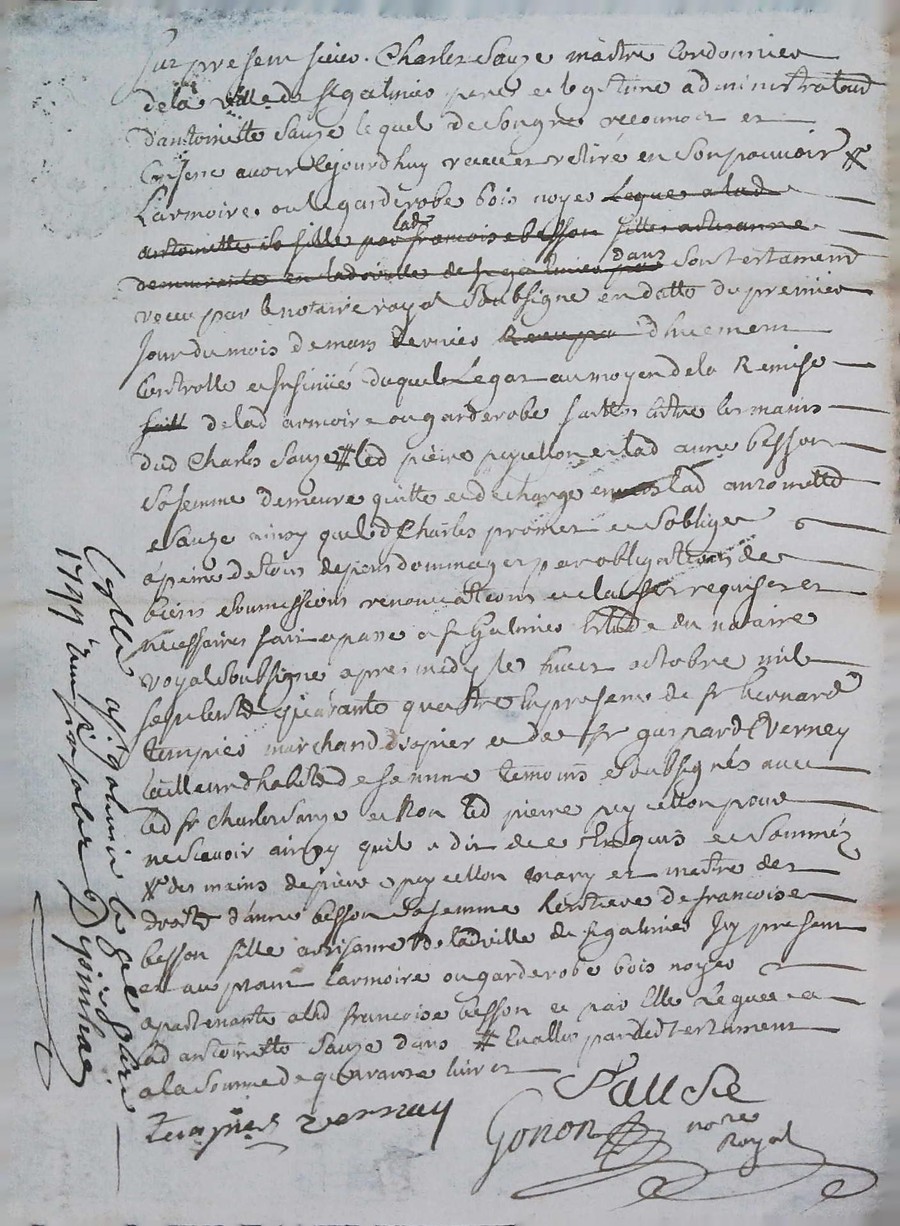 fut present sieur Charles Sauze maitre Cordonnier
de la ville de St galmier pere et legitime administrateur
d'antoinette Sauze lequel de Son gre reconnoit et
Confesse avoir cejourdhuy receu et retiré en Son pouvoir #
L'armoire ou le garderobe bois noyer Leguee a lad
antoinette sa fille par lad francoise besson fille artisanne
demeurante en lad ville de St galmier dans Son testament
receu par le notaire royal Soubsigne en datte du premier
Jour du mois de mars dernier Receu par dhuement
Controlle et Insinüé duquel Legat au moyen de la Remise
faitt de lad armoire ou garderobe faitte entre les mains
dud Charles Sauze # led pierre peycellon et lad anne besson
Sa femme demeure quitte et decharge envers lad antoinette
Sauze ainsy queled Charles promet et Soblige
a peine de tous depens dommages par obligations de
biens Soumissions renonciations et clauses requises et
necessaires fait et passe a St Galmier Etude du notaire
royal Soubsigne apres midy le huit octobre mil
sept cent quarante quattre En presence de sr bernard
tempier marchand drapier et de sr gaspard Verney
tailleur d'habits de femme temoins Soubsignés avec
led sr Charles Sauze et Non led pierre peycellon pour
ne Scavoir ainsy quil a dit de ce Enquis et Sommé
# des mains de pierre peycellon mary et maitre des
droits d'anne besson Sa femme heritiere de francoise
besson fille artisanne de lad ville de St galmier Icy present
et acceptant l'armoire ou garderobe bois noyer
apartenante a lad francoise besson et par Elle Leguee a
lad antoinette Sauze dans # Evallué par led testament
a la Somme de quarante livres
Sauze
tempier vernay
Gonon nore
Royal
Collé a St galmier le
1744